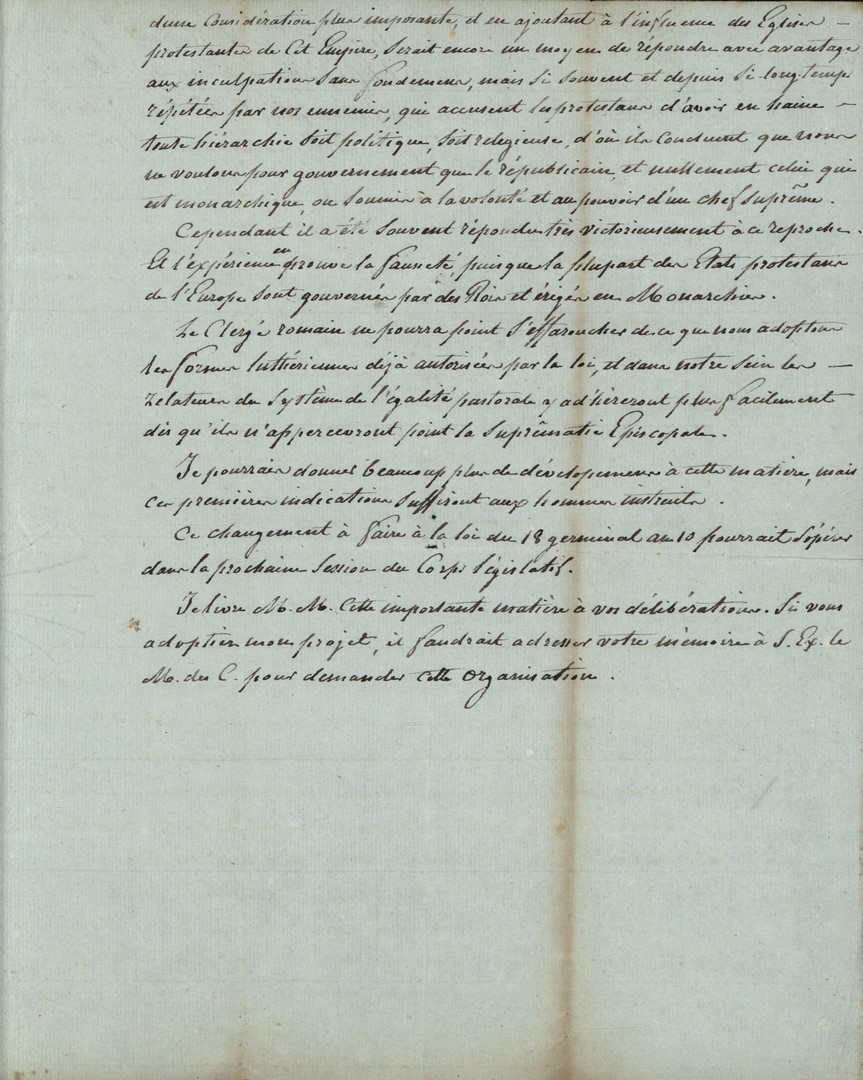 d'une Considération plus imposante, et en ajoutant à l'influence des Eglises —
protestantes de Cet Empire, Serait encore un moyen de répondre avec avantage
aux inculpations Sans fondemens, mais Si Souvent et depuis Si-long-temps
répétées par nos ennemis, qui accusent les protestans d'avoir en haine —
toute hiérarchie Soit politique, Soit religieuse, d'où ils Concluent que nous
ne voulons pour gouvernement que le républicain, et nullement celui qui
est monarchique, ou Soumis à la volonté et au pouvoir d'un chef Suprême.
Cependant il a été Souvent répondu très victorieusement à ce reproche.
Et l'expérience en prouve la fausseté, puisque la plupart des Etats protestans
de l'Europe Sont gouvernés par des Rois et érigés en Monarchies.
Le Clergé romain ne pourra point S'effaroucher de ce que nous adoptons
les formes luthériennes déjà autorisées par la loi, et dans notre Sein les —
Zelateurs du Système de l'égalité pastorale y adhèreront plus facilement
dès qu'ils n'appercevront point la Suprêmatie Episcopale.
Je pourrais donner beaucoup plus de développemens à cette matière, mais
ces premières indications Suffiront aux hommes instruits.
Ce changement à faire à la loi du 18 germinal an 10 pourrait S'opérer
dans la prochaine Session du Corps législatif.
Je livre M. M. Cette importante matière à vos délibérations. Si vous
adoptiez mon projet, il faudrait adresser votre mémoire à S. Ex. le
M. des C. pour demander cette organisation.